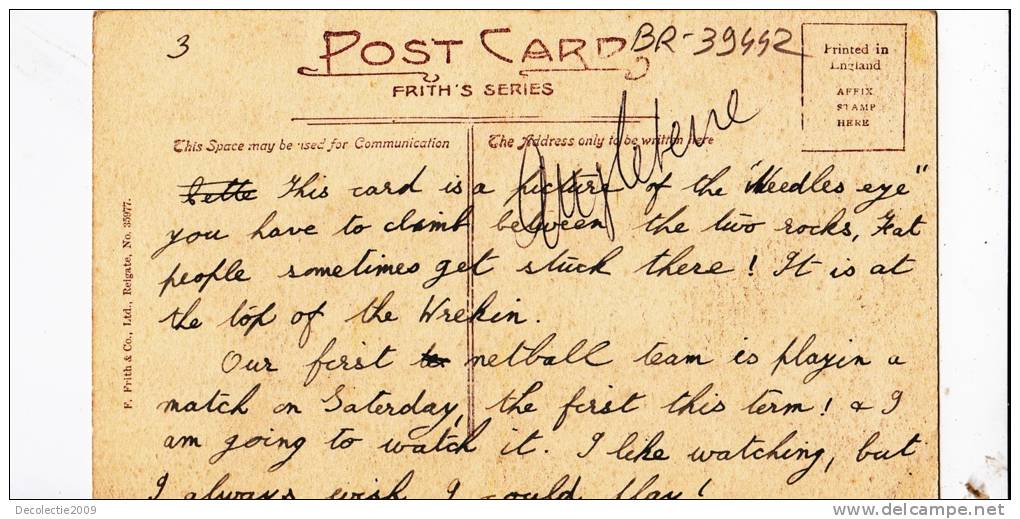 3
POST CARD
BR-39442
FRITH'S SERIES
Printed in
England
AFFIX
STAMP
HERE
This Space may be used for Communication
The Address only to be written here
This card is a picture of the "Needles eye"
you have to climb between the two rocks, Fat
people sometimes get stuck there! It is at
the top of the Wrekin.
Our first netball team is playin a
match on Saterday, the first this term! & I
am going to watch it. I like watching, but
I always wish I could play!
F. Frith & Co., Ltd., Reigate, No. 35977.
Decolectie2009
www.delcampe.net